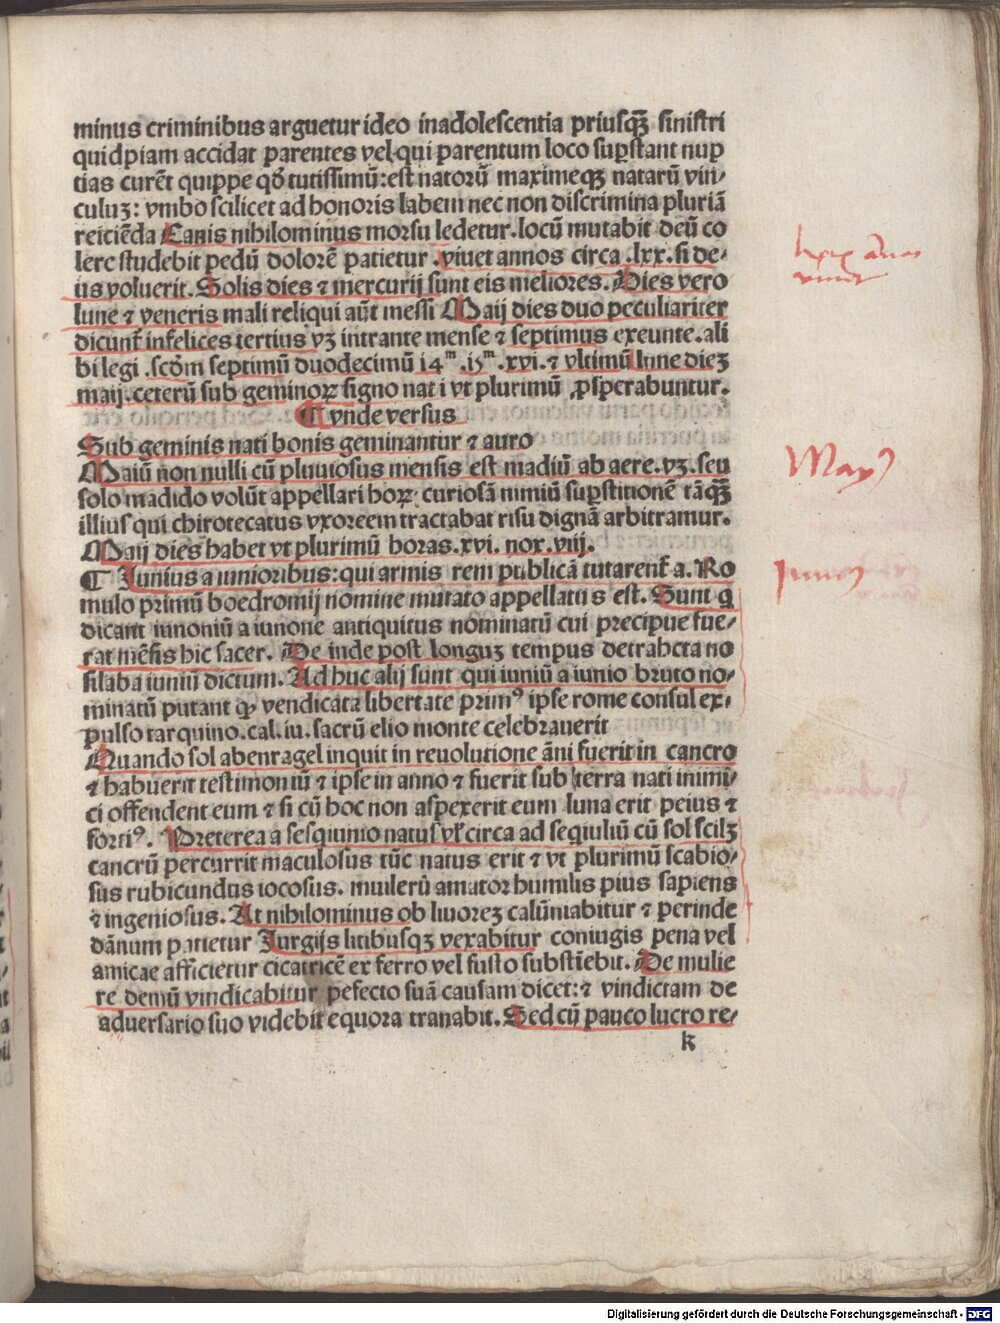 minus criminibus arguetur ideo inadolescentia priusqꝫ̄ sinistri
quidpiam accidat parentes vel qui parentum loco suꝑstant nup
tias curēt quippe qđ tutissimū: est natorū maximeqꝫ natarū vin⸗
culuꝫ: vmbo scilicet ad honoris labem nec non discrimina pluriā
reiciēda Canis nihilominus morsu ledetur. locū mutabit deū co
lere studebit pedū dolorē patietur .viuet annos circa .lxx. si de⸗
us voluerit. Solis dies ⁊ mercurij sunt eis meliores. Dies vero
lune ⁊ veneris mali reliqui aūt messi Maij dies duo peculiariter
dicunt̄ infelices tertius vꝫ intrante mense ⁊ septimus exeunte. ali
bi legi .scđm septimū duodecimū i4ᵐ .i5ᵐ .xvi. ⁊ vltimū lune dieꝫ
maij. ceterū sub geminoꝝ signo nati vt plurimū ꝓsperabuntur.
¶ vnde versus
Sub geminis nati bonis geminantur ⁊ auro
Maiū non nulli cū pluuiosus mensis est madiū ab aere. vꝫ. seu
solo madido volūt appellari hoꝝ: curiosā nimiū suꝑstitionē tāqꝫ̄
illius qui chirotecatus vxoreem tractabat risu dignā arbitramur.
Maij dies habet vt plurimū horas. xvi. nox. viij.
¶ Junius a iunioribus: qui armis rem publicā tutarent̄ a. Ro
mulo primū boedromij nomine mutato appellatus est. Sunt q
dicant iunoniū a iunone antiquitus nōminatū cui precipue fue⸗
rat mēsis hic sacer. De inde post longuꝫ tempus detrahcta no
silaba iuniū dictum. Ad huc alij sunt qui iuniū a iunio bruto no⸗
minatū putant qꝫ vendicata libertate primꝰ ipse rome consul ex⸗
pulso tarquino. cal. iu. sacrū elio monte celebrauerit
Quando sol abenragel inquit in reuolutione āni fuerit in cancro
⁊ habuerit testimoniū ⁊ ipse in anno ⁊ fuerit sub terra nati inimi⸗
ci offendent eum ⁊ si cū hoc non aspexerit eum luna erit peius ⁊
fortiꝰ. Preterea a sesqiunio natus vł circa ad seqiuliū cū sol scilꝫ
cancrū percurrit maculosus tūc natus erit ⁊ vt plurimū scabio⸗
sus rubicundus iocosus. muilerū amator humilis pius sapiens
⁊ ingeniosus. At nihilominus ob liuoreꝫ calūniabitur ⁊ perinde
dānum patietur Jurgijs litibusqꝫ vexabitur coniugis pena vel
amicae afficietur cicatricē ex ferro vel fusto substīebit. De mulie
re demū vindicabitur pefecto suā causam dicet: ⁊ vindictam de
aduersario suo videbit equora tranabit. Sed cū pauco lucro re⸗
k
lxx annos
viuent
Mayꝰ
Juniꝰ
Digitalisierung gefördert durch die Deutsche Forschungsgemeinschaft - DFG